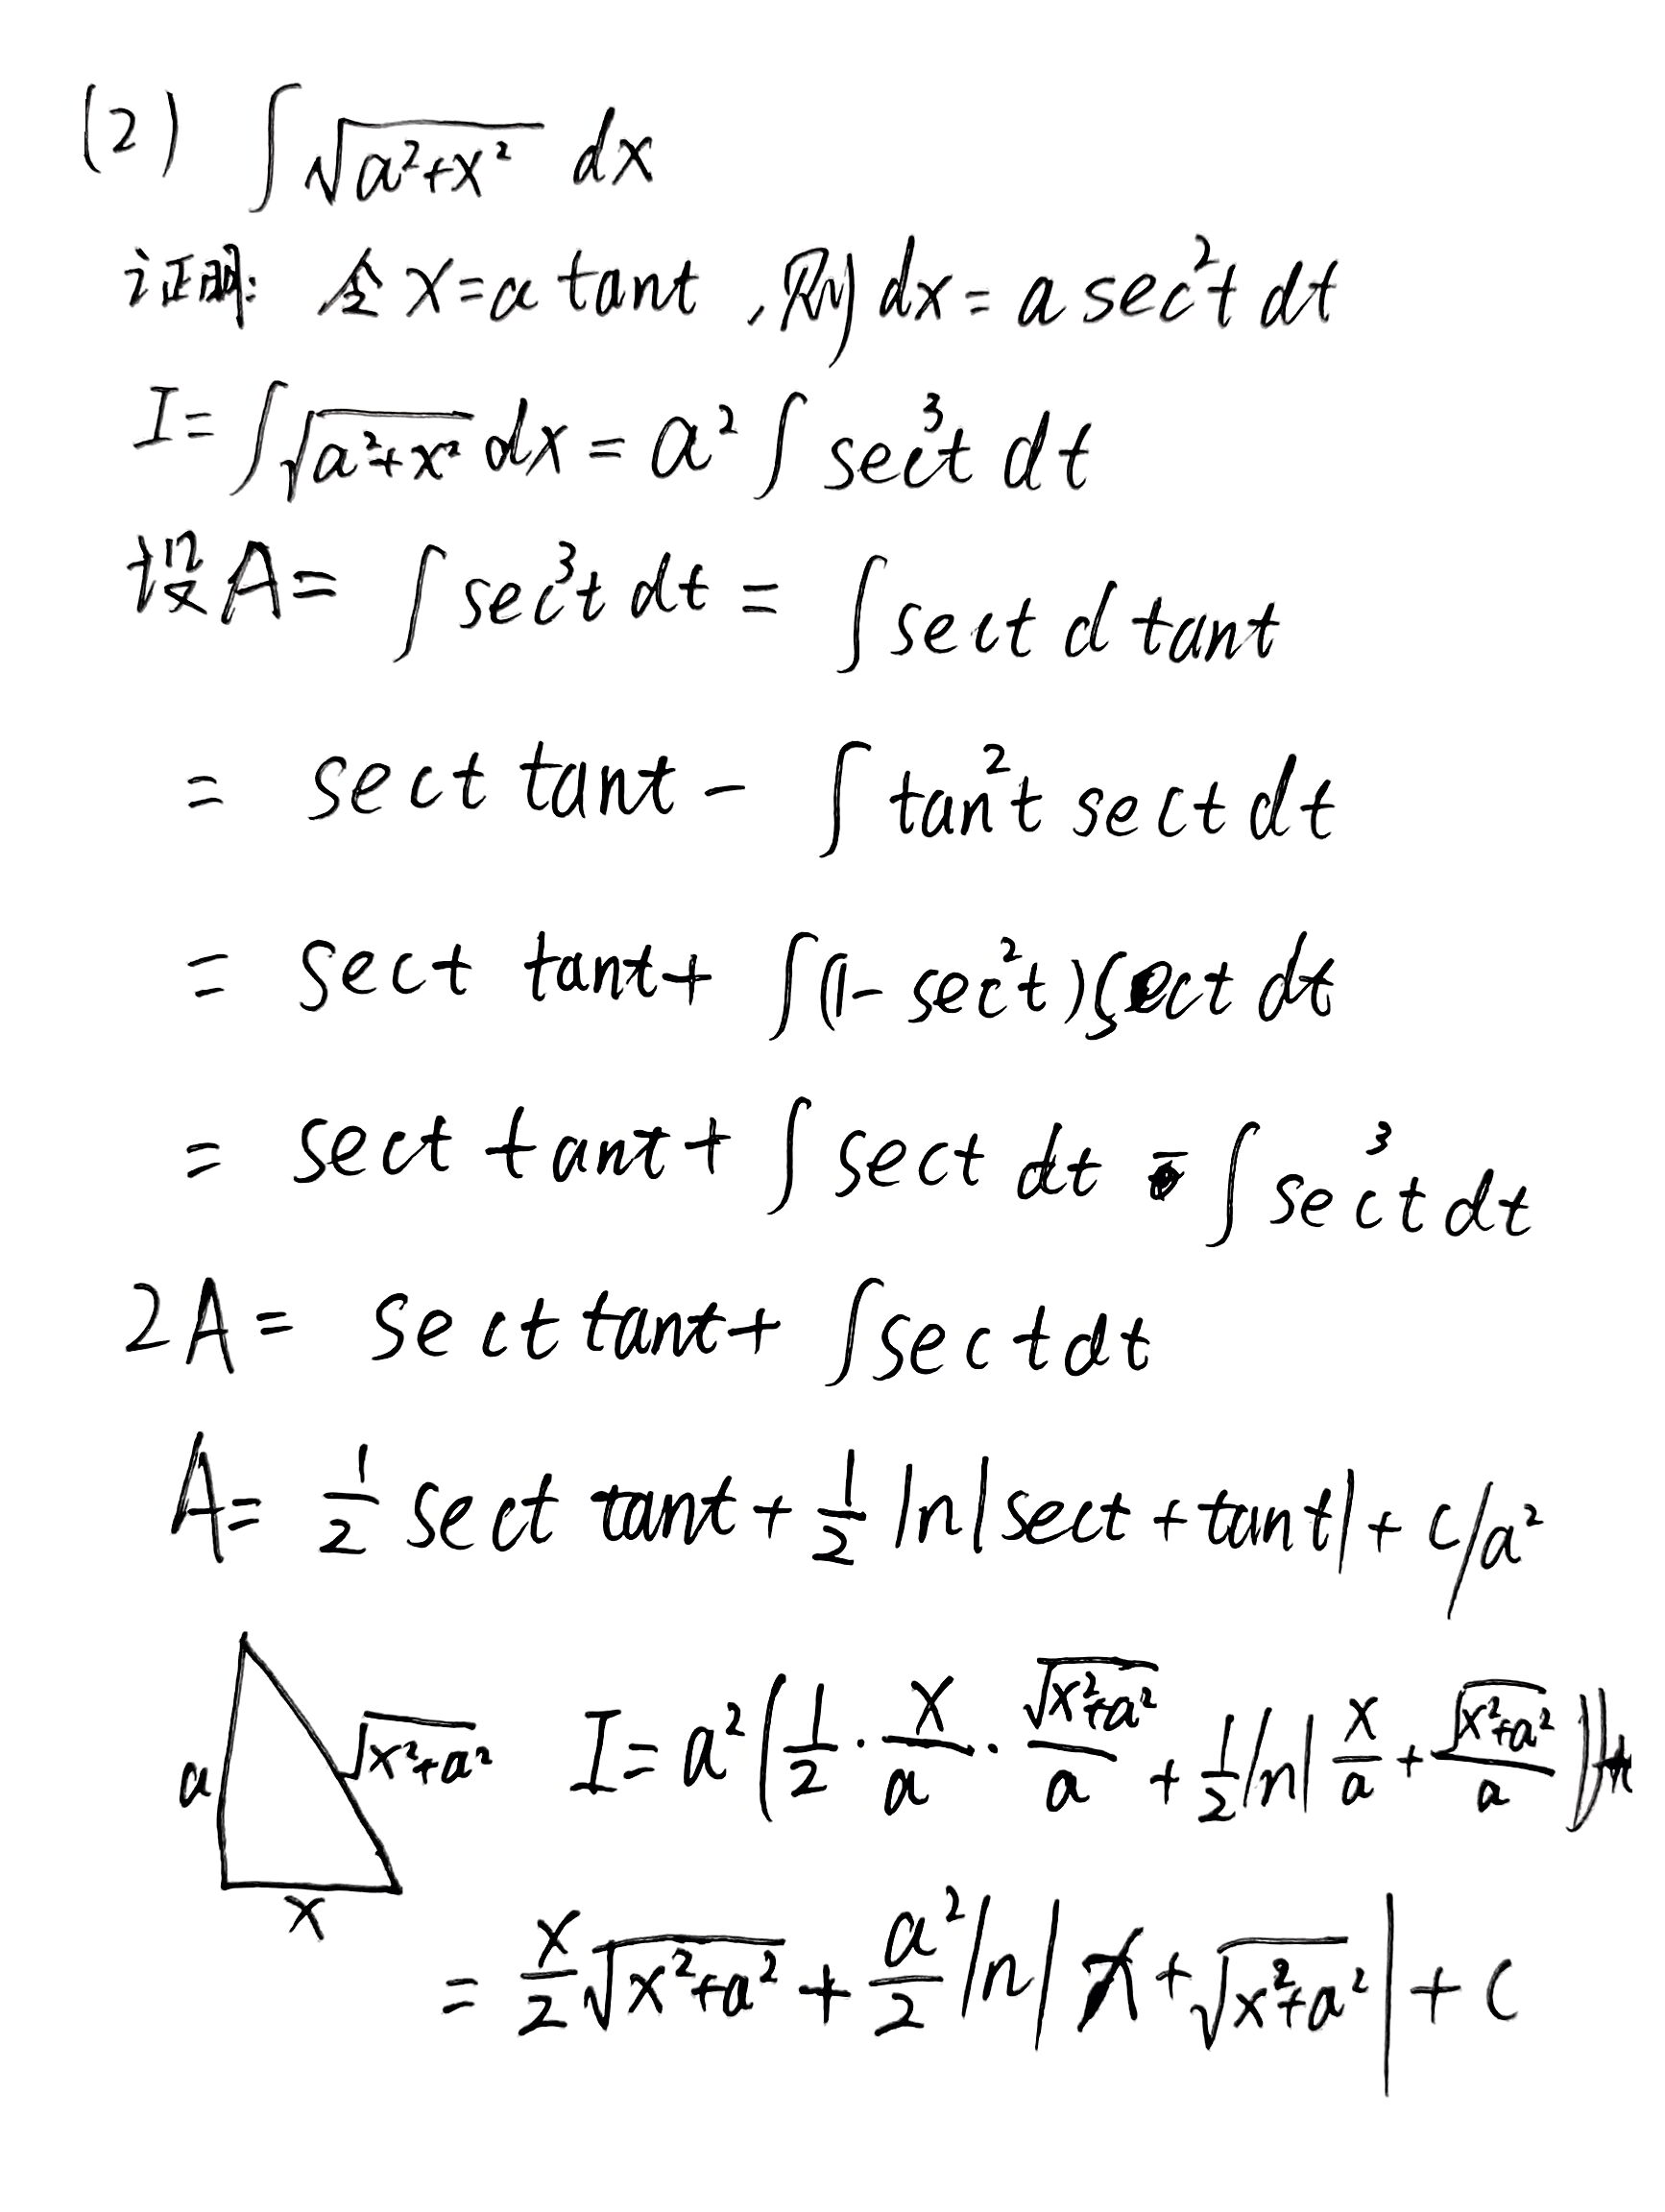 (2) ∫√(a²+x²) dx
证明: 令 x=a tant ,则 dx= a sec²t dt
I= ∫√(a²+x²) dx = a² ∫ sec³t dt
设 A= ∫ sec³t dt = ∫ sect d tant
= sect tant - ∫ tan²t sect dt
= sect tant + ∫(1- sec²t) sect dt
= sect tant + ∫ sect dt - ∫ sec³t dt
2A= sect tant + ∫ sect dt
A= 1/2 sect tant + 1/2 ln|sect + tant| + c/a²
a √(x²+a²) x
I= a² (1/2 · x/a · √(x²+a²)/a + 1/2 ln| x/a + √(x²+a²)/a |)+
= x/2 √(x²+a²) + a²/2 ln| x + √(x²+a²) | + c